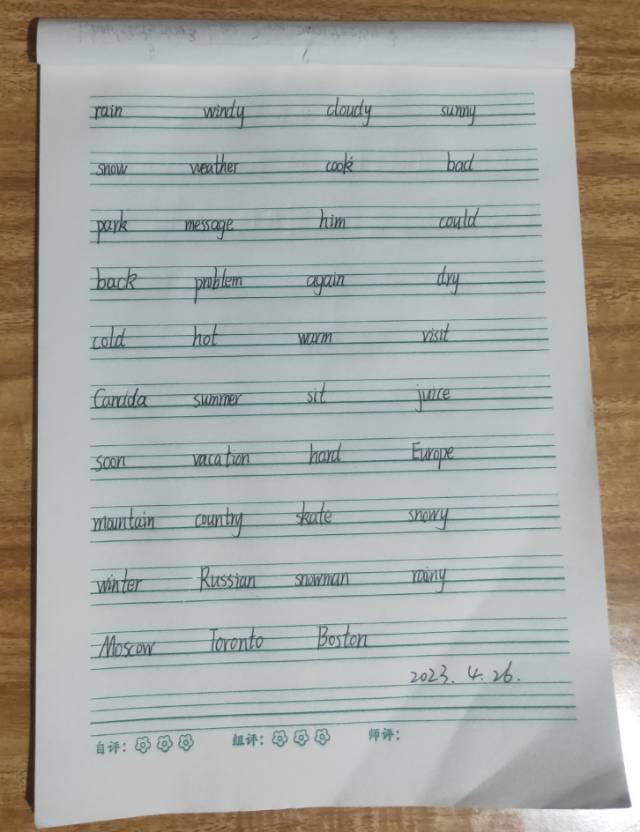 rain windy cloudy sunny
snow weather cook bad
park message him could
back problem again dry
cold hot warm visit
Candida summer sit juice
soon vacation hard Europe
mountain country skate snowy
winter Russian snowman rainy
Moscow Toronto Boston
2023. 4. 26.
自评: 组评: 师评: